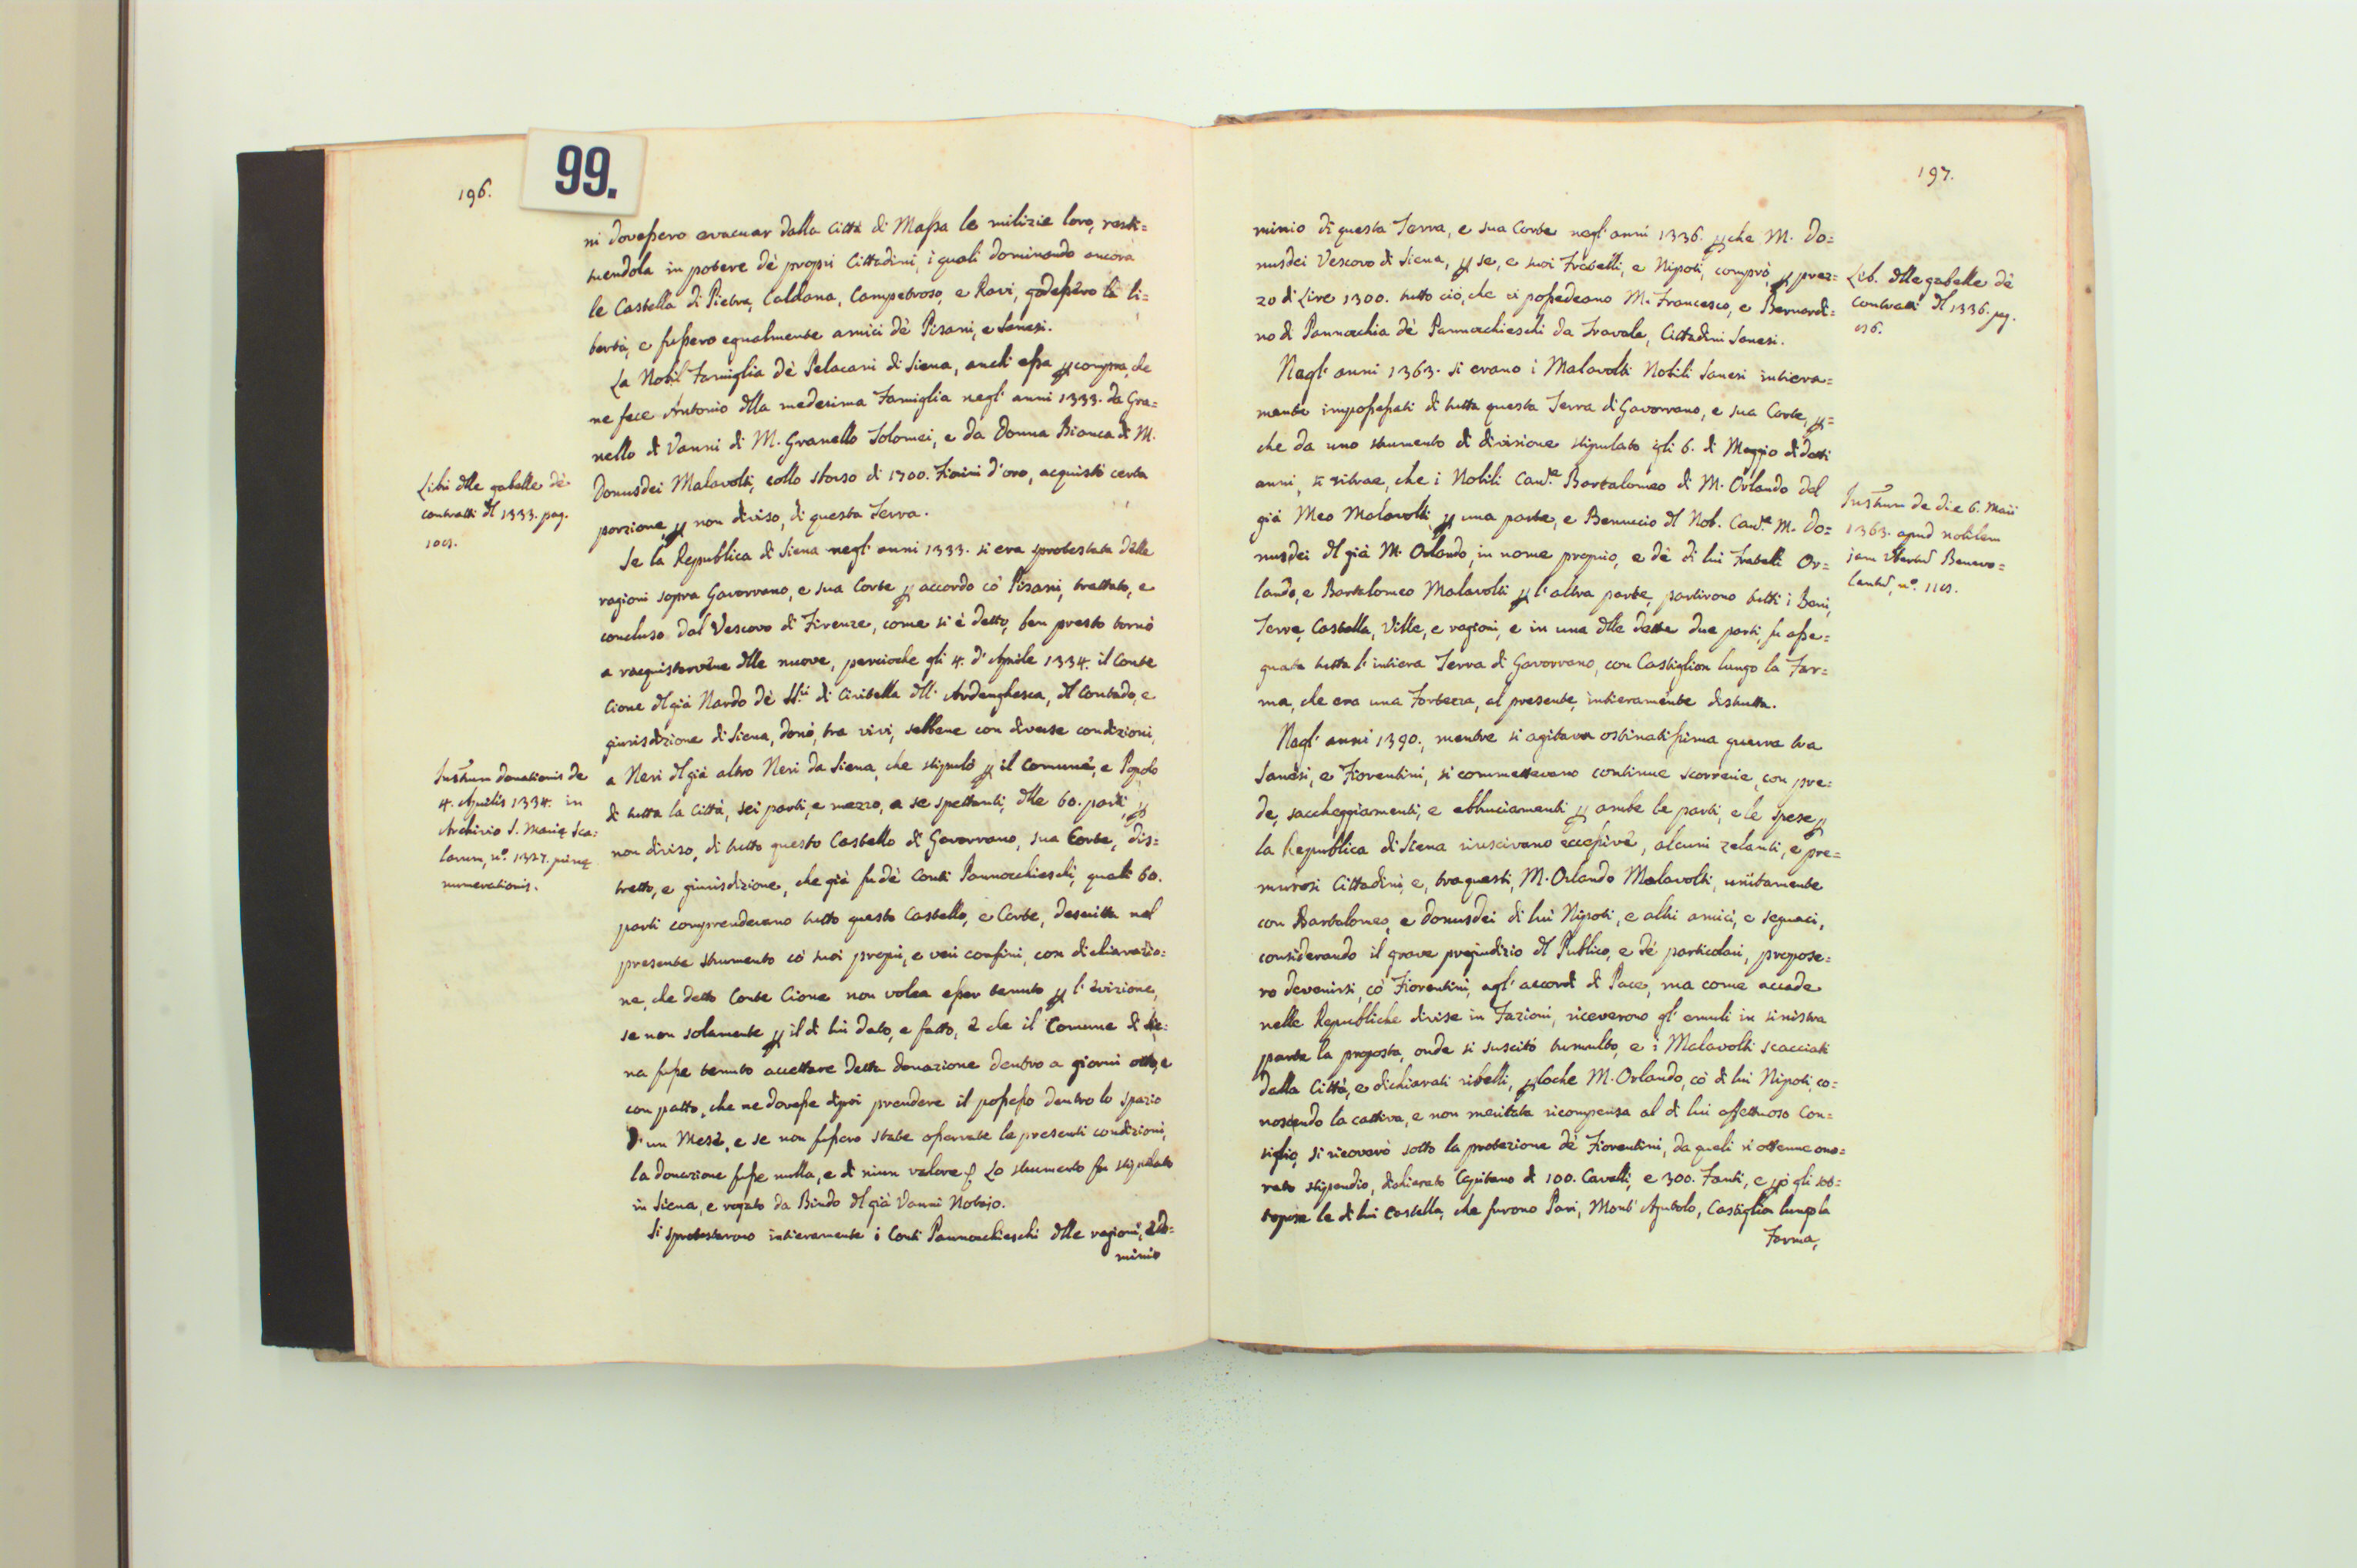 196.
99.
ni dovessero evacuar dalla Città di Massa le milizie loro, resti=
tuendola in potere dè proprj Cittadini, i quali dominando ancora
le Castella di Pietra, Caldana, Campetroso, e Ravi, godessero la li=
bertà, e fussero egualmente amici dè Pisani, e Sanesi.
La Nobil Famiglia dè Pelacani di Siena, anch' essa p compra, che
ne fece Antonio dlla medesima Famiglia negl' anni 1333. da Gra=
nello di Vanni di M. Granello Tolomei, e da Donna Bianca di M.
Donusdei Malavolti, collo sborso di 1700. Fiorini d'oro, acquistò certa
porzione, p non diviso, di questa Terra.
Libri dlle gabelle dè
contratti dl 1333. pag.
Se la Republica di Siena negl' anni 1333. si era sprotestata dalle
ragioni sopra Gavorrano, e sua Corte p accordo cò Pisani, trattato, e
concluso dal Vescovo di Firenze, come si è detto, ben presto tornò
a racquistarvene dlle nuove, percioche gli 4. d' Aprile 1334. il Conte
Cione dl già Nardo dè SS.ri di Civitella dll' Ardenghesca, dl Contado, e
giurisdizione di Siena, donò, tra vivi, sebbene con diverse condizioni,
a Neri dl già altro Neri da Siena, che stipulò p il Comune, e Popolo
di tutta la Città, sei parti, e mezzo, a se spettanti, dlle 60. parti, p
non diviso, di tutto questo Castello di Gavorrano, sua Corte, dis=
tretto, e giurisdizione, che già fu dè Conti Pannocchieschi, quali 60.
parti comprendevano tutto questo Castello, e Corte, descritta nel
presente strumento cò suoi proprj, e veri confini, con dichiarazio=
ne, che detto Conte Cione non volea esser tenuto p l' evizione,
se non solamente p il di lui dato, e fatto, e che il Comune di Sie=
na fusse tenuto accettare detta donazione dentro a giorni otto, e
con patto, che ne dovesse dipoi prendere il possesso dentro lo spazio
d'un Mese, e se non fussero state osservate le presenti condizioni,
la donazione fusse nulla, e di niun valore. Lo strumento fu stipulato
in Siena, e rogato da Bindo dl già Vanni Notajo.
Si sprotestarono intieramente i Conti Pannocchieschi dlle ragioni, e do=
minio
Instrum donationis de
4. Aprilis 1334. in
Archivio S. Mariæ Sca=
larum, n.º 1327. primæ
numerationis.
197.
minio di questa Terra, e sua Corte negl' anni 1336. p che M. Do=
nusdei Vescovo di Siena, p se, e suoi Fratelli, e Nipoti, comprò, p prez=
zo di Lire 1300. tutto ciò, che ci possedeano M. Francesco, e Bernardi=
no di Pannocchia dè Pannocchieschi da Travale, Cittadini Sanesi.
Lib. dlle gabelle dè
contratti dl 1336. pag.
Negl' anni 1363. si erano i Malavolti Nobili Sanesi intiera=
mente impossessati di tutta questa Terra di Gavorrano, e sua Corte, p=
che da uno strumento di divisione stipulato gli 6. di Maggio di detti
anni, si ritrae, che i Nobili Cav.e Bartalomeo di M. Orlando del
già Meo Malavolti p una parte, e Benuccio dl Nob. Cav.e M. Do=
nusdei dl già M. Orlando, in nome proprio, e dè di lui Fratelli Or=
lando, e Bartalomeo Malavolti p l'altra parte, partirono tutti i Beni,
Terre, Castella, Ville, e ragioni, e in una dlle dette due parti, fu asse=
gnata tutta l'intiera Terra di Gavorrano, con Castiglion lungo la Far=
ma, che era una Fortezza, al presente, intieramente distrutta.
Instrum de die 6. Maii
1363. apud nobilem
jam Benevo=
lentũ, n.º
Negl' anni 1390., mentre si agitava ostinatissima guerra tra
Sanesi, e Fiorentini, si commettevano continue scorrerie, con pre=
de, saccheggiamenti, e abbruciamenti p ambe le parti, e le spese p
la Republica di Siena riuscivano eccessive, alcuni zelanti, e pre=
murosi Cittadini, e, tra questi, M. Orlando Malavolti, unitamente
con Bartalomeo, e Donusdei di lui Nipoti, e altri amici, e seguaci,
considerando il grave pregiudizio dl Publico, e dè particolari, propose=
ro devenirsi, cò Fiorentini, agl' accordi di Pace, ma come accade
nelle Republiche divise in Fazioni, riceverono gl' emuli in sinistra
parte la proposta, onde si suscitò tumulto, e i Malavolti scacciati
dalla Città, e dichiarati ribelli, p loche M. Orlando, cò di lui Nipoti, co=
noscendo la cattiva, e non meritata ricompensa al di lui affettuoso Con=
siglio, si ricoverò sotto la protezione dè Fiorentini, da quali vi ottenne ono=
rato stipendio, dichiarato Capitano di 100. Cavalli, e 300. Fanti, e pò gli sot=
topose le di lui Castella, che furono Pari, Mont' Agutolo, Castiglion lungo la
Farma,